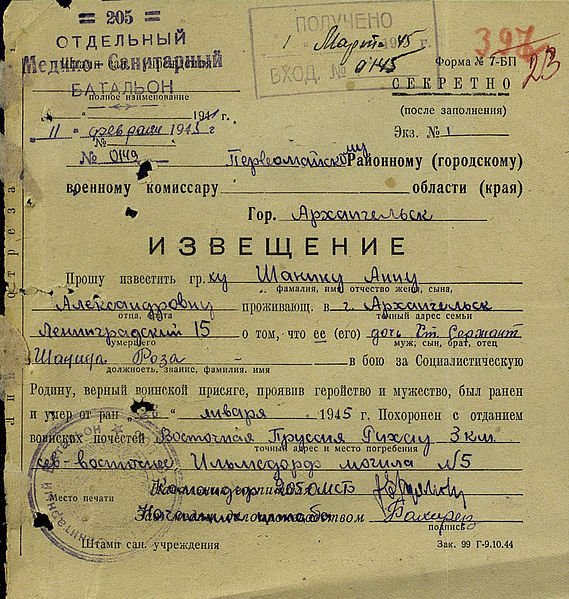 = 205 =
ОТДЕЛЬНЫЙ
Медико-Санитарный
БАТАЛЬОН
полное наименование
ПОЛУЧЕНО
1 Март 45 г.
ВХОД. № 0145
397
23
Форма № 7-БП
СЕКРЕТНО
(после заполнения)
Экз. № 1
194 г.
„11" февраля 1945 г
№
№ 0149
Первомайскому Районному (городскому)
военному комиссару области (края)
Гор. Архангельск
ИЗВЕЩЕНИЕ
Прошу известить гр.ку Шанину Анну
фамилия, имя отчество жена, сына,
Александровну проживающ. в г. Архангельск
отца, брата точный адрес семьи
Ленинградский 15 о том, что ее (его) дочь Ст. Сержант
умершего муж, сын, брат, отец
Шанина Роза - в бою за Социалистическую
должность, звание, фамилия. имя
Родину, верный воинской присяге, проявив геройство и мужество, был ранен
и умер от ран „ " января 1945 г. Похоронен с отданием
воинских почестей Восточная Пруссия Рихау 3 км.
точный адрес и место погребения
сев-восточнее Ильмсдорф могила №5
Командир 205 ОМСБ
Место печати
Начальник штаба
подпись
Штамп сан. учреждения
Зак. 99 Г-9.10.44
отреза